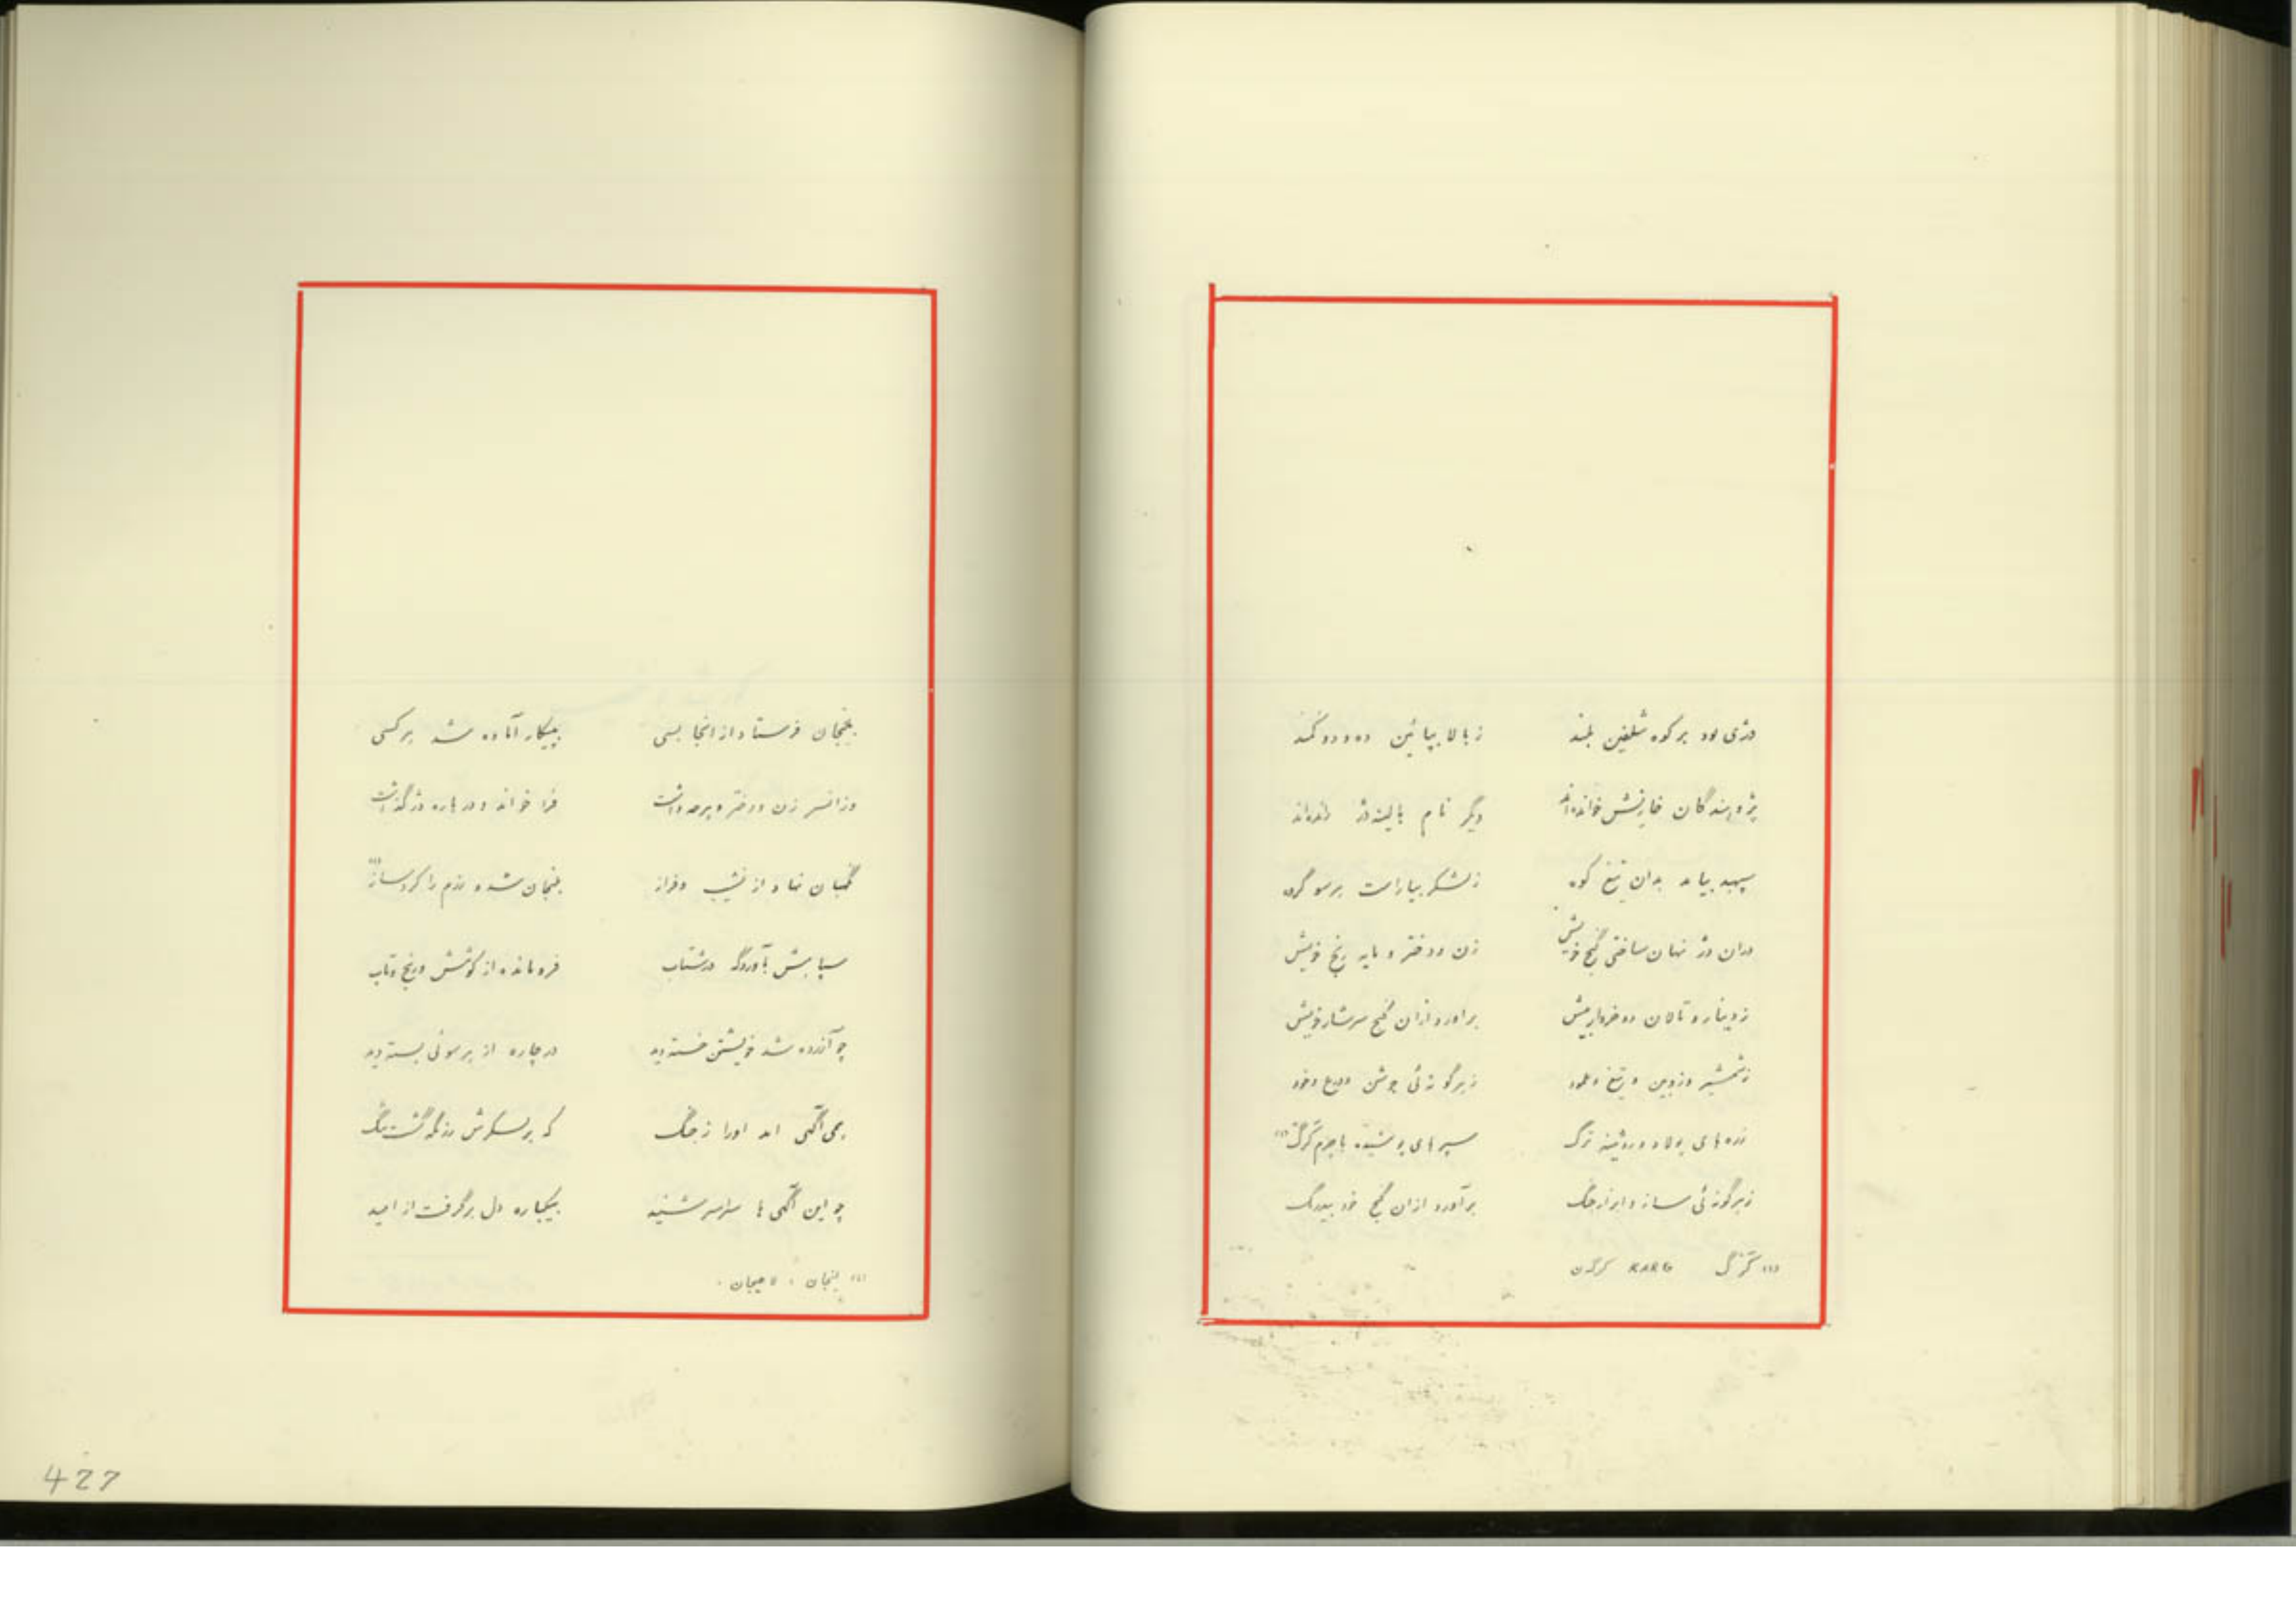 دژی بود بر کوه شلفین بلند    ز بالا بپائین ده و دو کمند
پژوهندگان خوانده‌اند    دگر نام بالینه دژ رانده‌اند
سپهبد بیامد بدان تیغ کوه    ز لشکر بیاراست برسو گروه
دران دژ نهان ساختی گنج خویش    زن و دختر و مایه رنج خویش
ز دینار و تالان ده خروار بیش    براورد ازان گنج سرشار خویش
ز شمشیر و زوبین و تیغ و عمود    ز هرگونه‌ئی جوشن و درع و خود
زره‌های پولاد و ترگ    سپرهای پوشیده با چرم کرگ (۱)
ز هرگونه‌ئی ساز و ابزار جنگ    برآورد ازان گنج خود بیدرنگ
(۱) کرگ KARG کرگدن
فرستاد از انجا بسی    بپیکار آماده شد هر کسی
زن و دختر و هر چه داشت    فرا خواند و در باره دژ گذاشت
نگهبان نهاد از نشیب و فراز    شد و رزم را کرد ساز (۱)
سپاهش بآوردگه در شتاب    فرومانده از کوشش و رنج و تاب
چو آزرده شد خویشتن خسته دید    در چاره از هر سوئی بسته دید
همی آگهی امد اورا ز جنگ    که بر لشکرش رزمگه گشت تنگ
چو این آگهی‌ها سراسر شنید    بیکباره دل برگرفت از امید
(۱) لاهیجان .
427